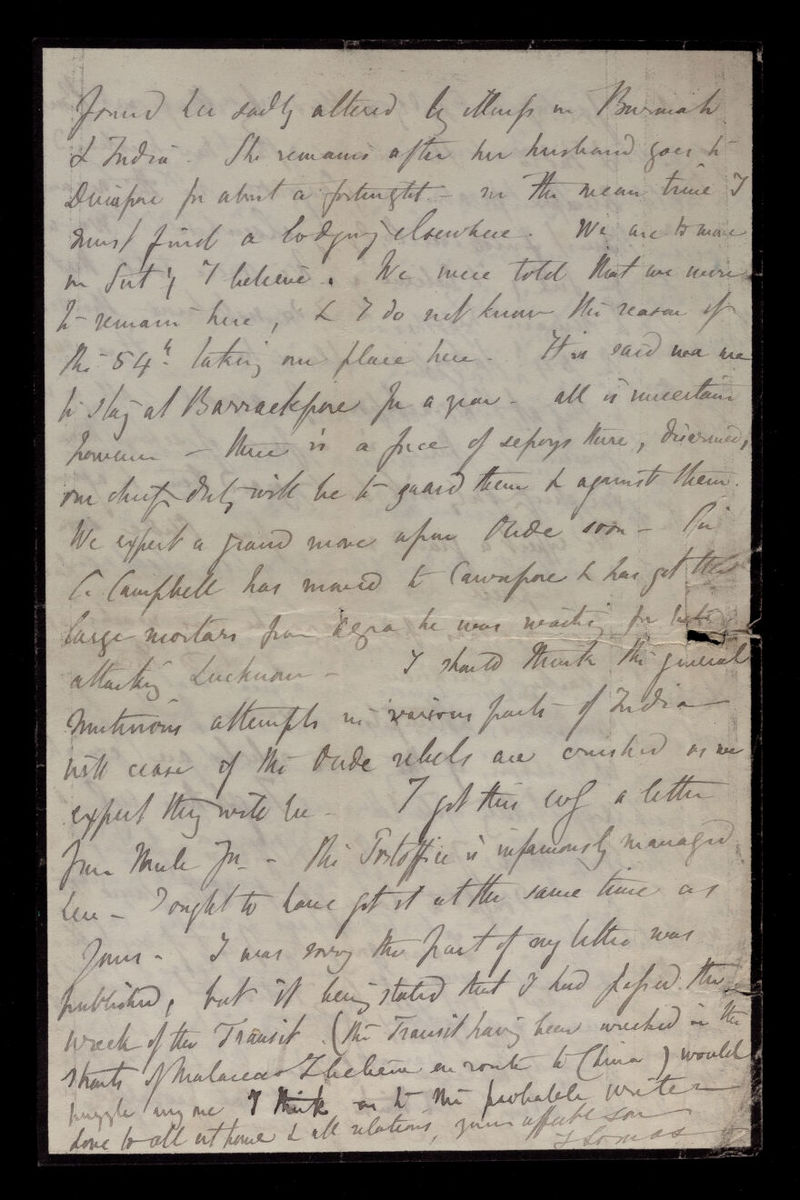 found her sadly altered by illness in Burmah
& India - She remains after her husband goes to
Dinapore for about a fortnight - in the mean time I
must find a lodging elsewhere. We are to move
on I believe. We were told that we were
to remain here, & I do not know the reason of
the 54th taking our place here. It is said we are
to stay at Barrackpore for a year - all is uncertain
however - there is a force of sepoys there, disarmed,
our chief duty will be to guard them & against them.
We expect a grand move upon Oude soon - Sir
C Campbell has moved to Cawnpore & has got the
large mortars from Agra he was waiting for before
attacking Lucknow - I should think the general
mutinous attempts in various parts of India
will cease if the Oude rebels are crushed as we
expect they will be - I got this evg a letter
from Uncle Jn. - The Postoffice is infamously managed
here - I ought to have got it at the same time as
yours - I was sorry the part of my letter was
published, but it being stated that I had passed the
wreck of the Transit (the Transit having been wrecked in the
straits of Malacca I believe en route to China) would
puzzle any one I think as to the probable writer
Love to all at home & all relations, your affecte son
Thomas